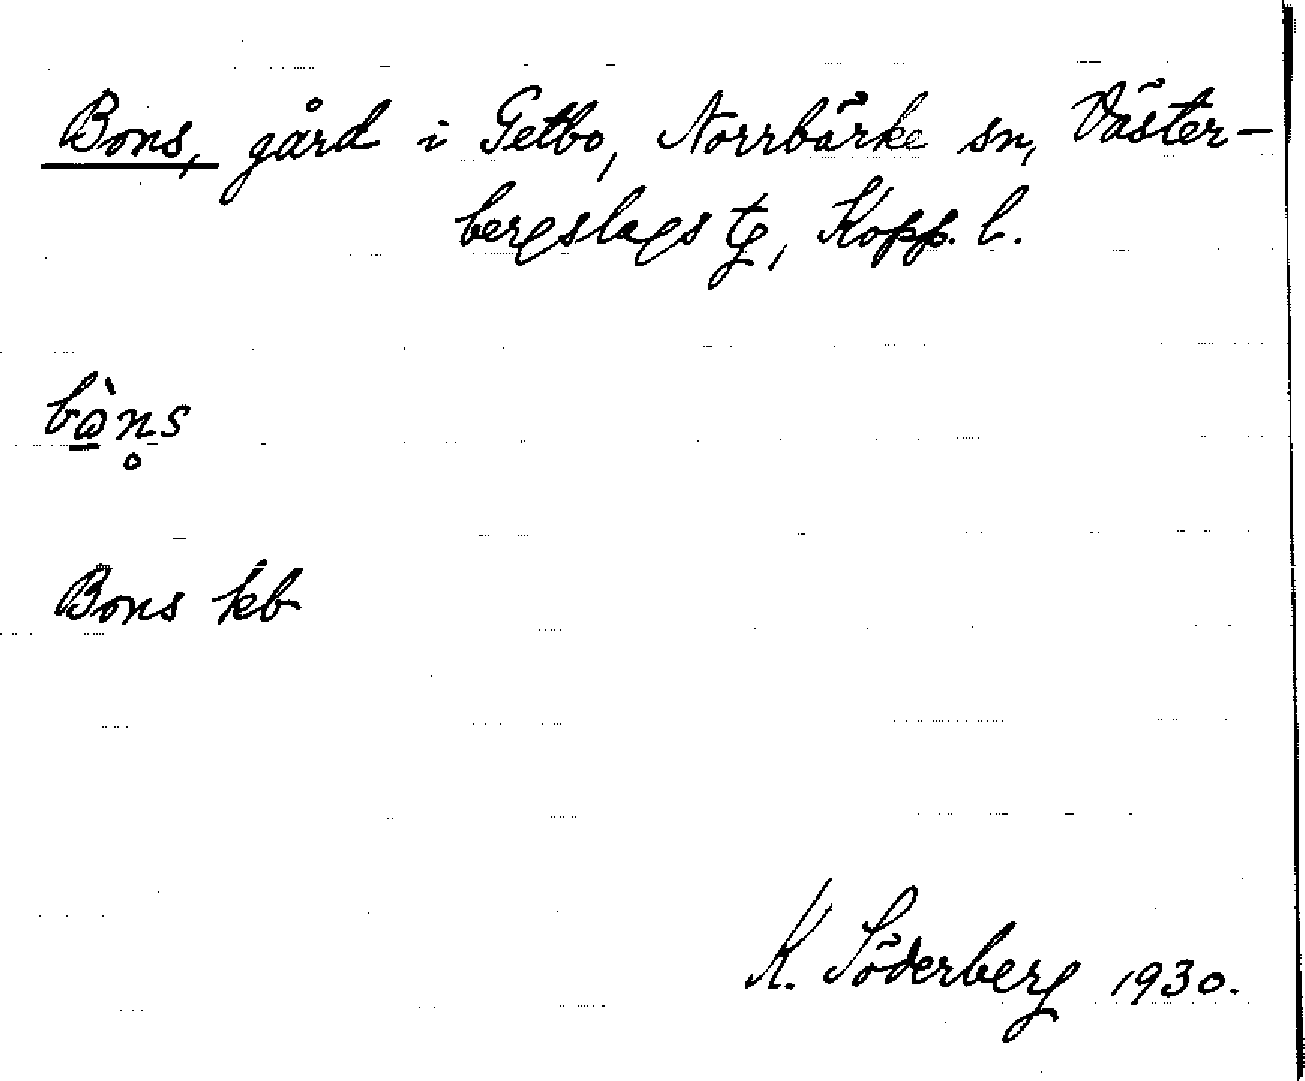 Bons, gård i Getbo, Norrbärke sn, Väster-
bergslags tg, Kopp. l.
bὼn̥s
Bons kb
K. Söderberg 1930.